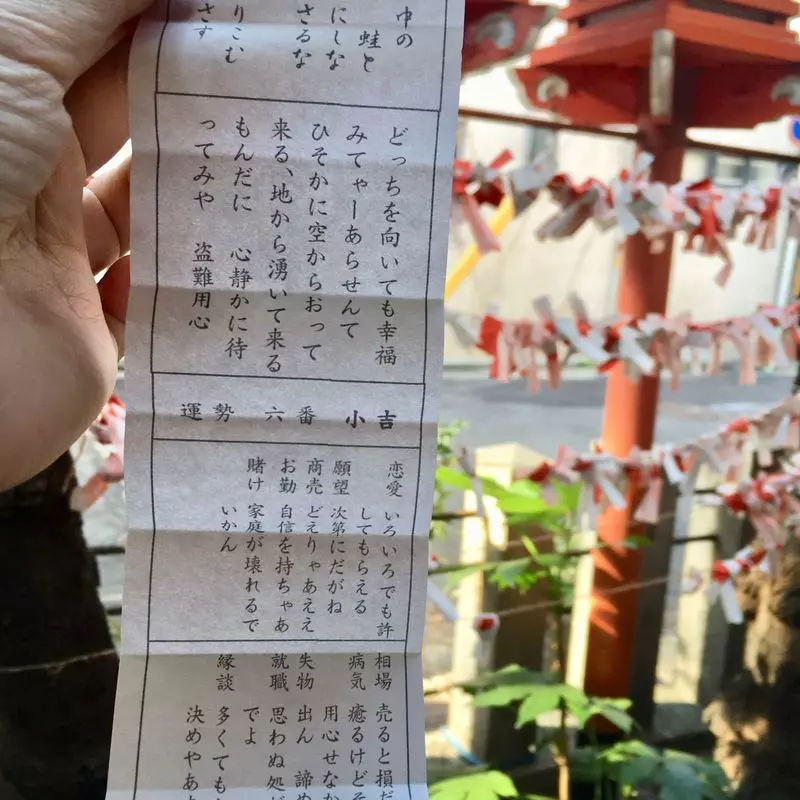 中の
蛙と
にしな
さるな
りこむ
さす
どっちを向いても幸福
みてゃーあらせんて
ひそかに空からおって
来る、地から湧いて来る
もんだに 心静かに待
ってみや 盗難用心
運勢 六番 小吉
恋愛 いろいろでも許
してもらえる
願望 次第にだがね
商売 どえりゃあええ
お勤 自信を持ちゃあ
賭け 家庭が壊れるで
いかん
相場 売ると損だ
病気 癒るけどそ
失物 用心せなか
出ん 諦め
就職 思わぬ処が
でよ
縁談 多くても
決めやあ